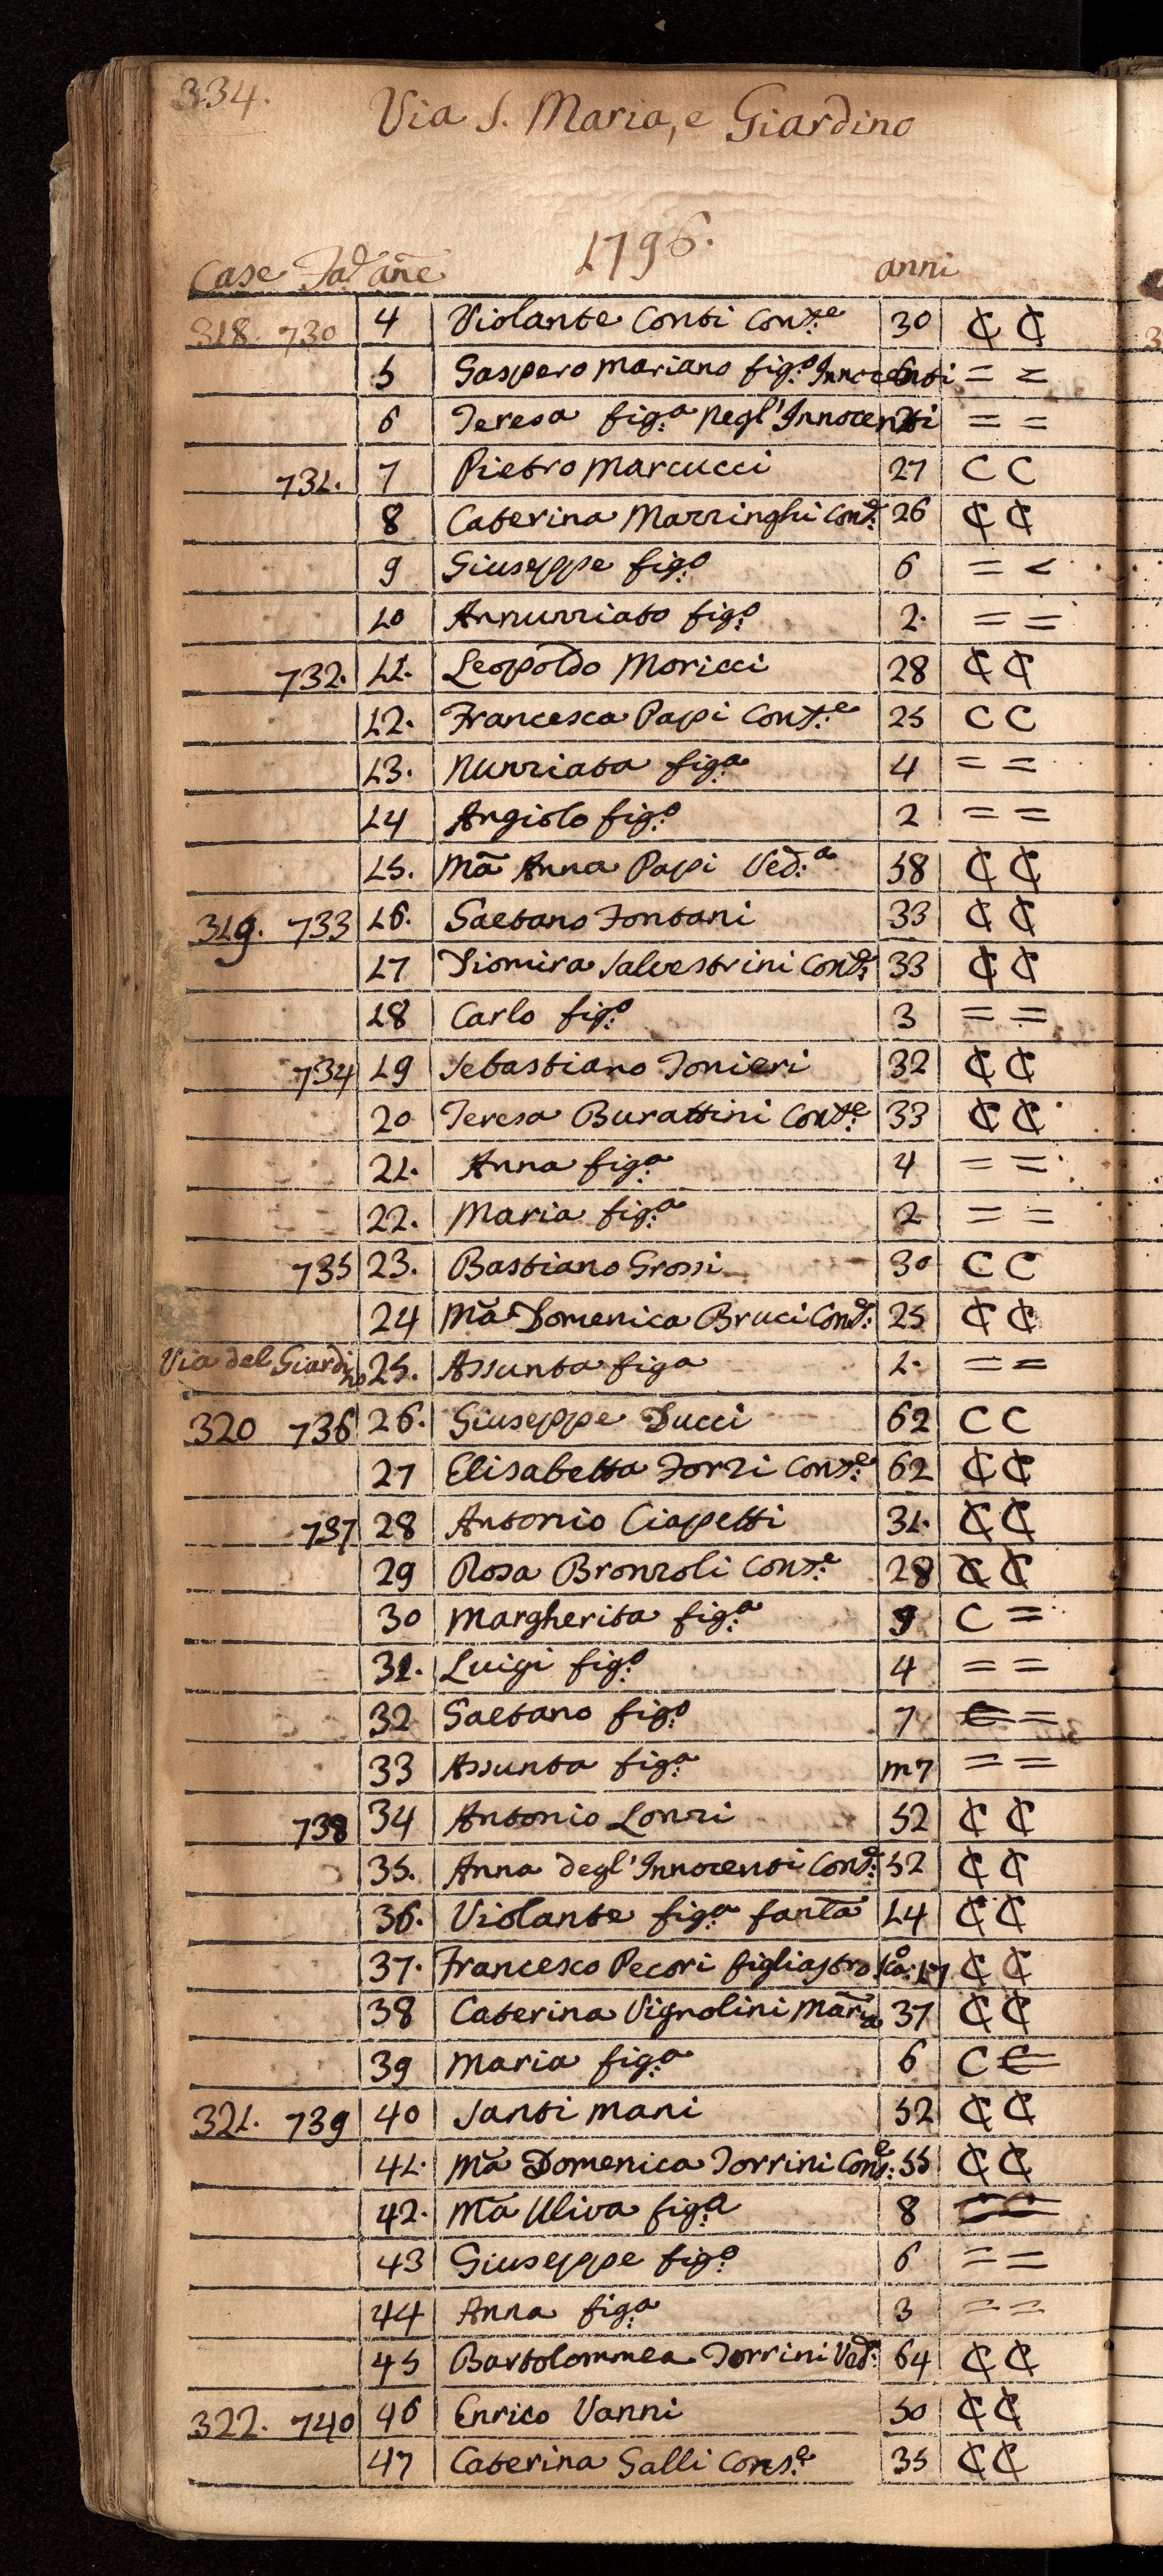 334.
Via S. Maria, e Giardino
1796.
Case Fad añe anni
318. 730 4 Violante Conti Cons.e 30 C C
5 Gaspero Mariano fig.o Innocenti = =
6 Teresa fig.a Negl'Innocenti = =
731. 7 Pietro Marcucci 27 C C
8 Caterina Marzinghi Cons.e 26 C C
9 Giuseppe fig.o 6 = =
10 Annunziato fig.o 2. = =
732. 11. Leopoldo Moricci 28 C C
12. Francesca Papi Cons.e 25 C C
13. Nunziata fig.a 4 = =
14 Angiolo fig.o 2 = =
15. Mã Anna Papi Ved.a 58 C C
319. 733 16. Gaetano Fontani 33 C C
17 Diomira Salvestrini Cons.e 33 C C
18 Carlo fig.o 3 = =
734 19 Sebastiano Tonieri 32 C C
20 Teresa Burattini Cons.e 33 C C
21. Anna fig.a 4 = =
22. Maria fig.a 2 = =
735 23. Bastiano Grossi 30 C C
24 Mã Domenica Bruci Cons.e 25 C C
Via del Giardino 25. Assunta figa 1. = =
320 736 26. Giuseppe Ducci 62 C C
27 Elisabetta Forzi Cons.e 62 C C
737 28 Antonio Ciapetti 31. C C
29 Rosa Bronzoli Cons.e 28 C C
30 Margherita fig.a 9 C =
31. Luigi fig.o 4 = =
32 Gaetano fig.o 7 = =
33 Assunta fig.a m7 = =
738 34 Antonio Lonzi 52 C C
35. Anna degl'Innocenti Cons.e 52 C C
36. Violante fig.a fanta 14 C C
37. Francesco Pecori figliastro 17 C C
38 Caterina Vignolini 37 C C
39 Maria fig.a 6 C =
321. 739 40 Santi Mani 52 C C
41. Mã Domenica Torrini Cons.e 55 C C
42. Mã Uliva fig.a 8 = =
43 Giuseppe fig.o 6 = =
44 Anna fig.a 3 = =
45 Bartolommea Torrini Ved.a 64 C C
322. 740 46 Enrico Vanni 50 C C
47 Caterina Galli Cons.e 35 C C